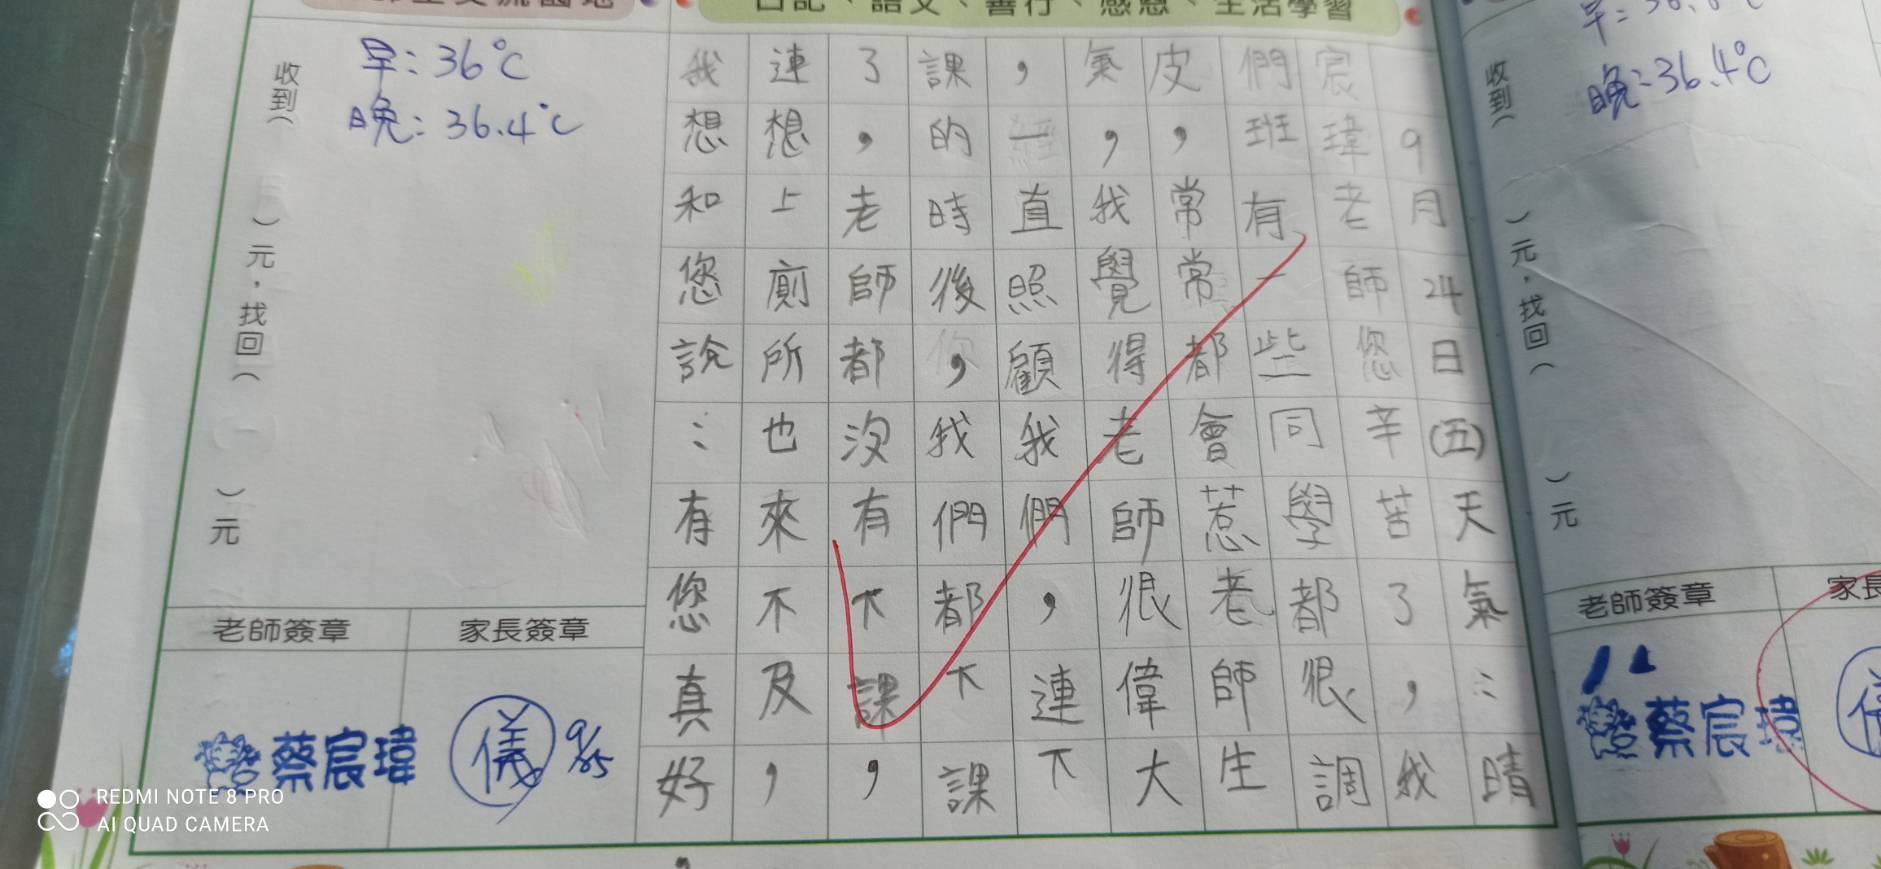 日記、語文、善行、感恩、生活學習
9月24日(五)天氣：晴
宸瑋老師您辛苦了，我
們班有一些同學都很調
皮，常常都會惹老師生
氣，我覺得老師很偉大
，一直照顧我們，連下
課的時後，我們都下課
了，老師都沒有下課，
連想上廁所也來不及，
我想和您說：有您真好
早：36℃
晚：36.4℃
收到（　）元，找回（　）元
老師簽章
家長簽章
蔡宸瑋
儀
9/25
晚：36.4℃
收到（　）元，找回（　）元
老師簽章
家長
蔡宸瑋
REDMI NOTE 8 PRO
AI QUAD CAMERA